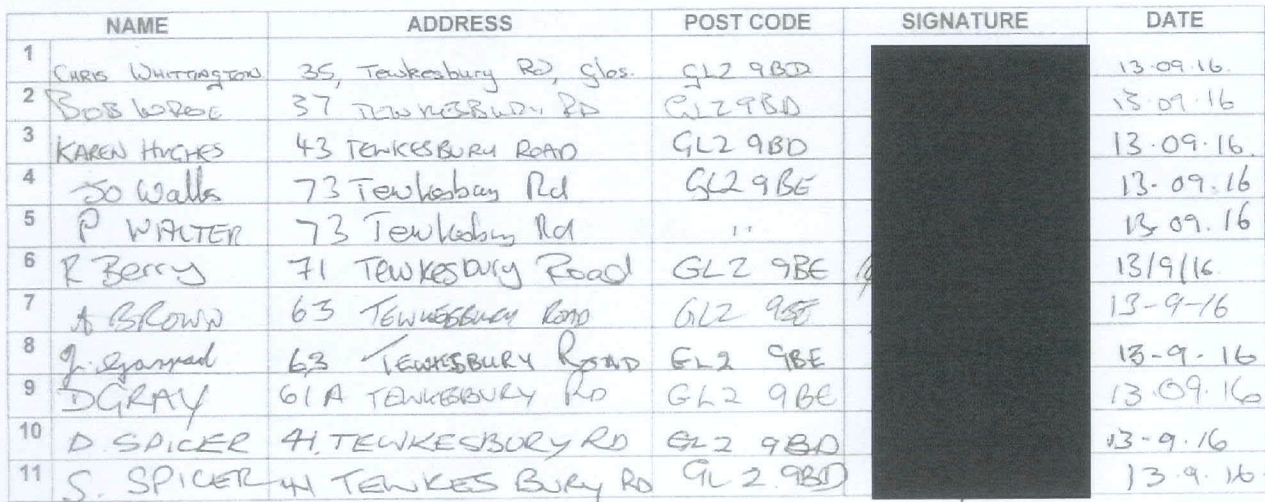 NAME ADDRESS POST CODE SIGNATURE DATE
1 CHRIS WHITTINGTON 35, Tewkesbury RD, Glos. GL2 9BD 13.09.16.
2 BOB 37 TEWKESBURY RD GL2 9BD 13.09.16
3 KAREN HUGHES 43 TEWKESBURY ROAD GL2 9BD 13.09.16.
4 Jo Walls 73 Tewkesbury Rd GL2 9BE 13.09.16
5 P WALTER 73 Tewkesbury Rd " 13.09.16
6 R Berry 71 Tewkesbury Road GL2 9BE 13/9/16.
7 A BROWN 63 TEWKESBURY ROAD GL2 9BE 13-9-16
8 63 TEWKESBURY ROAD GL2 9BE 13-9-16
9 D GRAY 61A TEWKESBURY RD GL2 9BE 13.09.16
10 D. SPICER 41, TEWKESBURY RD GL2 9BD 13-9.16
11 S. SPICER 41 TEWKESBURY RD GL2.9BD 13.9.16.